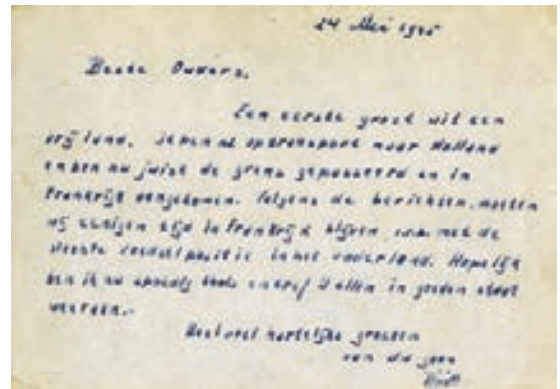 24 Mei 1945
Beste Ouders,
Een eerste groet uit een
vrij land. Ik ben op transport naar Holland
en ben nu juist de grens gepasseerd en in
Frankrijk aangekomen. Volgens de berichten moeten
wij eenigen tijd in Frankrijk blijven, met de
slechte voedselpositie in het vaderland. Hopelijk
ben ik nu spoedig thuis en tref U allen in goeden staat
Veel hartelijke groeten
van Uw zoon